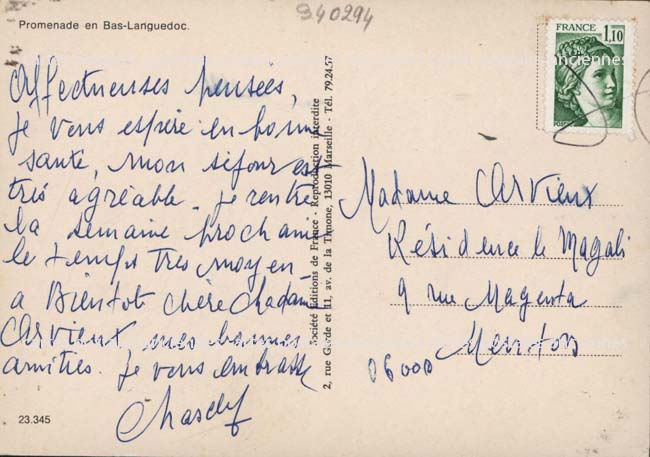 940294
Promenade en Bas-Languedoc.
FRANCE
1,10
Affectueuses pensées,
je vous espère en bonne
santé, mon séjour est
très agréable. je rentre
la semaine prochaine
le temps très moyen
a Bientôt chère Madame
Arvieux mes bonnes
amitiés. Je vous embrasse
23.345
Société Éditions de France - Reproduction interdite
2, rue Garde et 11, av. de la Timone, 13010 Marseille - Tél. 79.24.57
Madame Arvieux
Résidence le Magali
9 rue Magenta
Menton
06000